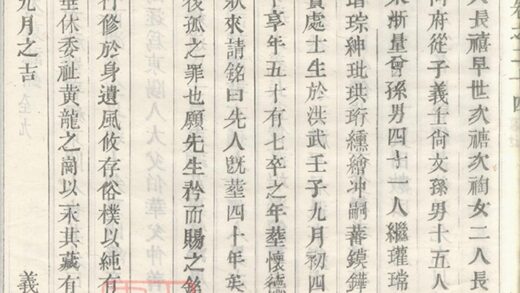 人長禧早世次禟次裪女二人長
何府從子義士尙文孫男十五人
來漸量曾孫男四十一人繼瓘瑞
琮紳玭珙珩纁繪冲嗣蕃鏌鏵
實處士生於洪武壬子九月初四
享年五十有七卒之年塟懷德
狀來請銘曰先人旣塟四十年矣
後孤之罪也願先生矜而賜之銘
行修於身遺風攸存俗樸以純有
垂休委祉黃龍之崗以永其藏有
九月之吉 義